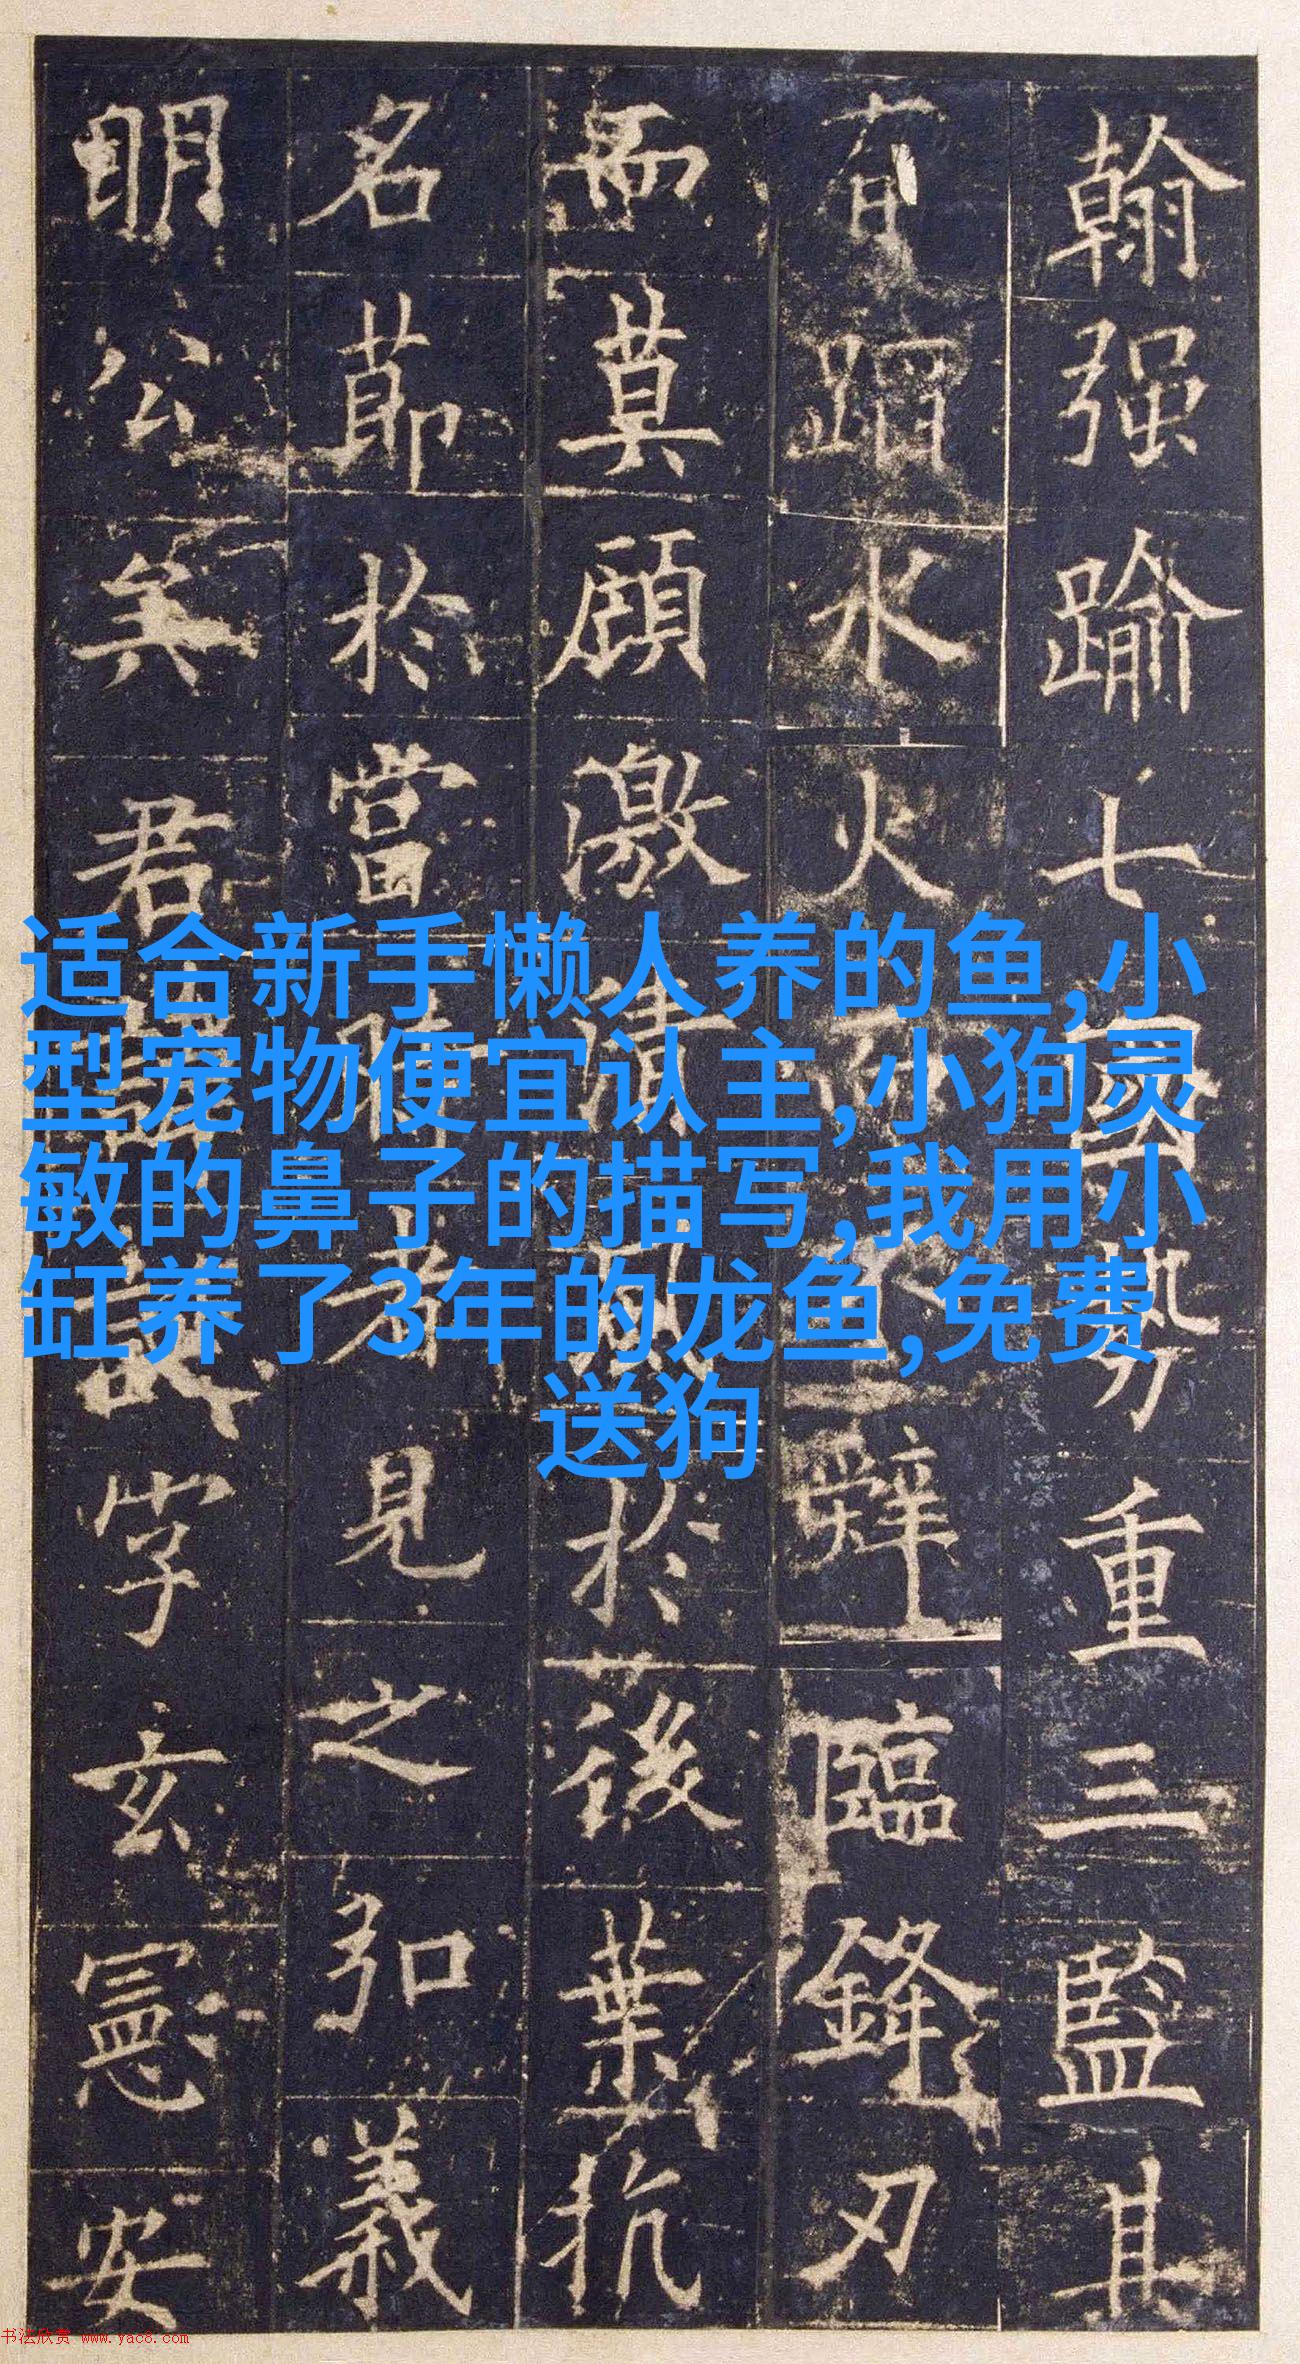 翰强踰七國勢重三監其
有蹈水火而不辭臨鋒刃
而莫顧激清風於後葉抗
名節於當時者見之弘義
明公矣君諱誕字玄憲安
适合新手懒人养的鱼,小
型宠物便宜认主,小狗灵
敏的鼻子的描写,我用小
缸养了3年的龙鱼,免费
送狗
书法欣赏 www.yac8.com